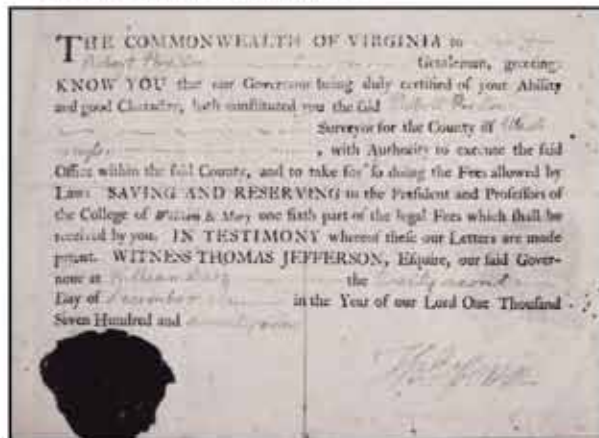 THE COMMONWEALTH OF VIRGINIA to
Robert Gentleman, greeting:
KNOW YOU that our Governour being duly certified of your Ability
and good Character, hath constituted you the said Robert
Surveyor for the County of
, with Authority to execute the said
Office within the said County, and to take for so doing the Fees allowed by
Law: SAVING AND RESERVING to the President and Professors of
the College of William & Mary one sixth part of the legal Fees which shall be
received by you. IN TESTIMONY whereof these our Letters are made
patent. WITNESS THOMAS JEFFERSON, Esquire, our said Gover-
nour at Williamsburg the twenty second
Day of December in the Year of our Lord One Thousand
Seven Hundred and seventy nine